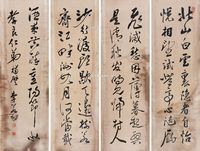 北山白雲裏隱者自怡
悅相望試登高心隨雁
飛滅愁因薄暮起興
是清秋發時見歸村人
沙行渡頭歇天邊樹若
薺江畔洲如月何當載
酒來共醉重陽節